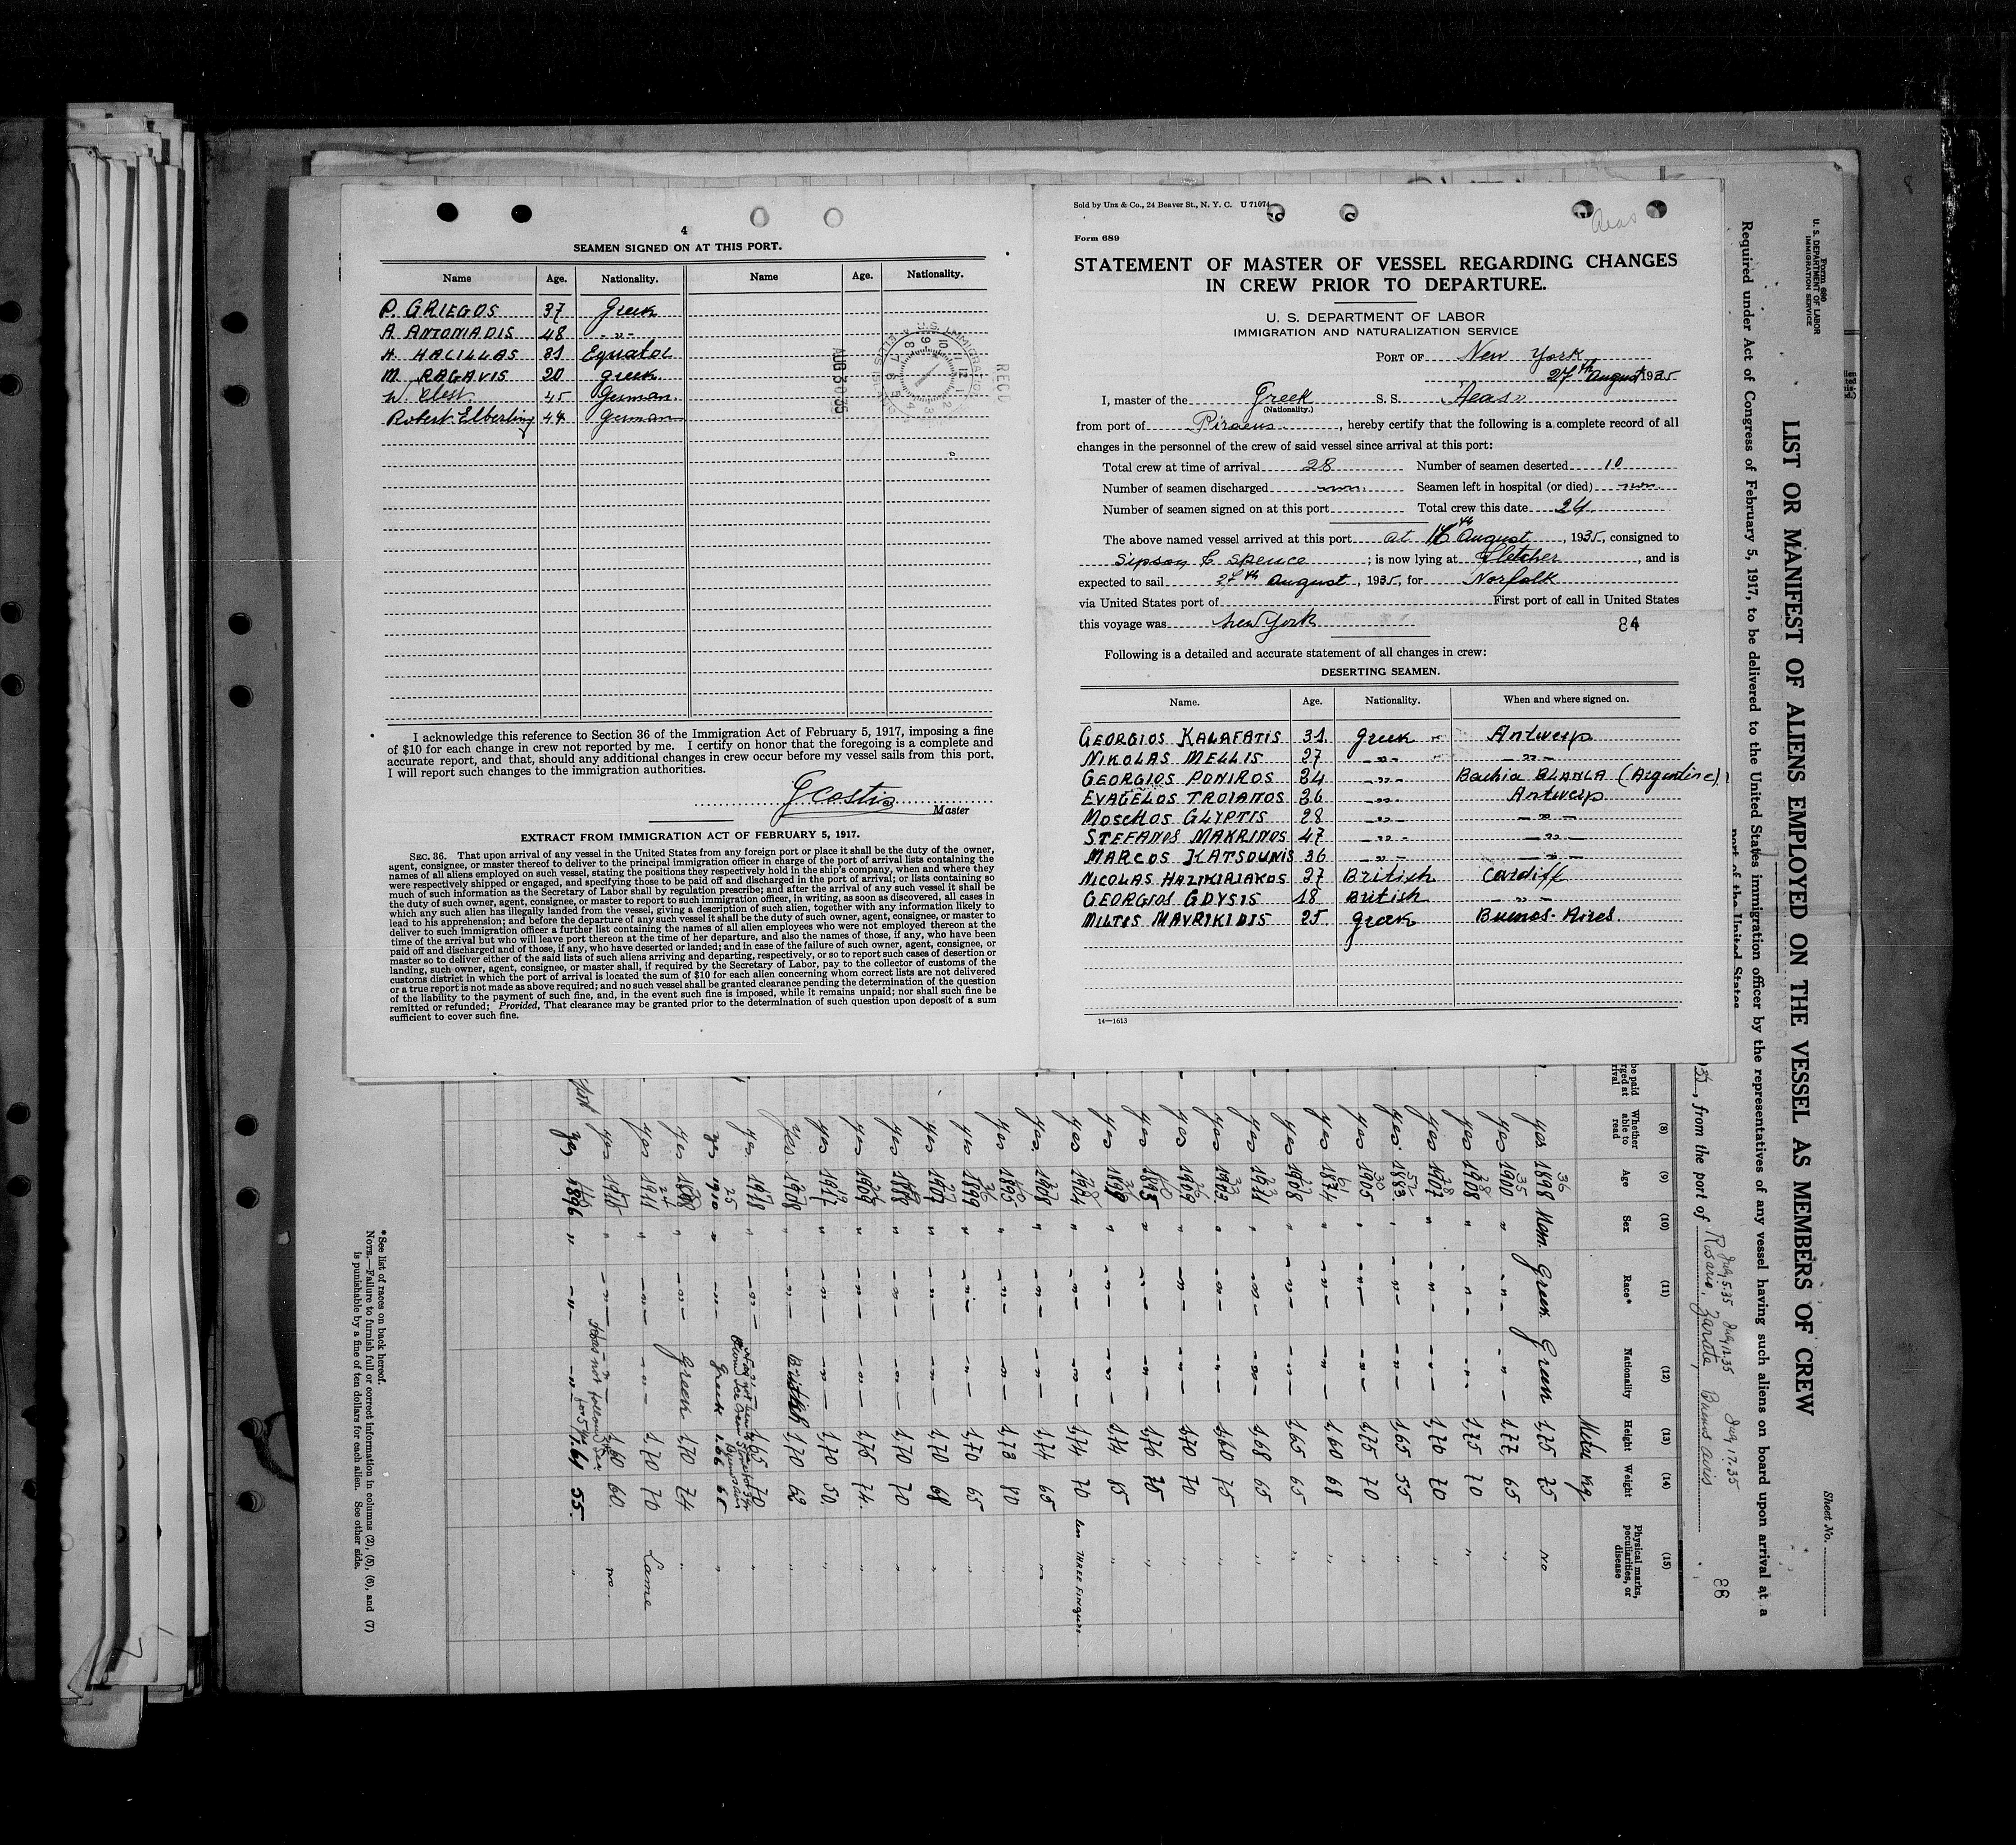 4
SEAMEN SIGNED ON AT THIS PORT.
Name Age. Nationality. Name Age. Nationality.
P. GRIEGOS 37 Greek
A. ANTONIADIS 48 -„-
H. HACILLAS 31 Equator
M. RAGAVIS 20 greek
W. 45 German.
Robert Elberling 44 German
AUG 30 35
REC'D
U.S. IMMIGRATION
I acknowledge this reference to Section 36 of the Immigration Act of February 5, 1917, imposing a fine
of $10 for each change in crew not reported by me. I certify on honor that the foregoing is a complete and
accurate report, and that, should any additional changes in crew occur before my vessel sails from this port,
I will report such changes to the immigration authorities.
G Costis
Master
EXTRACT FROM IMMIGRATION ACT OF FEBRUARY 5, 1917.
SEC. 36. That upon arrival of any vessel in the United States from any foreign port or place it shall be the duty of the owner,
agent, consignee, or master thereof to deliver to the principal immigration officer in charge of the port of arrival lists containing the
names of all aliens employed on such vessel, stating the positions they respectively hold in the ship's company, when and where they
were respectively shipped or engaged, and specifying those to be paid off and discharged in the port of arrival; or lists containing so
much of such information as the Secretary of Labor shall by regulation prescribe; and after the arrival of any such vessel it shall be
the duty of such owner, agent, consignee, or master to report to such immigration officer, in writing, as soon as discovered, all cases in
which any such alien has illegally landed from the vessel, giving a description of such alien, together with any information likely to
lead to his apprehension; and before the departure of any such vessel it shall be the duty of such owner, agent, consignee, or master to
deliver to such immigration officer a further list containing the names of all alien employees who were not employed thereon at the
time of the arrival but who will leave port thereon at the time of her departure, and also the names of those, if any, who have been
paid off and discharged and of those, if any, who have deserted or landed; and in case of the failure of such owner, agent, consignee, or
master so to deliver either of the said lists of such aliens arriving and departing, respectively, or so to report such cases of desertion or
landing, such owner, agent, consignee, or master shall, if required by the Secretary of Labor, pay to the collector of customs of the
customs district in which the port of arrival is located the sum of $10 for each alien concerning whom correct lists are not delivered
or a true report is not made as above required; and no such vessel shall be granted clearance pending the determination of the question
of the liability to the payment of such fine, and, in the event such fine is imposed, while it remains unpaid; nor shall such fine be
remitted or refunded; Provided, That clearance may be granted prior to the determination of such question upon deposit of a sum
sufficient to cover such fine.
Sold by Unz & Co., 24 Beaver St., N. Y. C. U 71074
Aeas
Form 689
STATEMENT OF MASTER OF VESSEL REGARDING CHANGES
IN CREW PRIOR TO DEPARTURE.
U. S. DEPARTMENT OF LABOR
IMMIGRATION AND NATURALIZATION SERVICE
PORT OF New York
27th August 1935
I, master of the Greek S. S. Aeas
(Nationality.)
from port of Piraeus, hereby certify that the following is a complete record of all
changes in the personnel of the crew of said vessel since arrival at this port:
Total crew at time of arrival 28 Number of seamen deserted 10
Number of seamen discharged Seamen left in hospital (or died)
Number of seamen signed on at this port Total crew this date 24
The above named vessel arrived at this port at 16th August, 1935, consigned to
Sipson C. Spence; is now lying at Fletcher, and is
expected to sail 27th August, 1935, for Norfolk
via United States port of First port of call in United States
this voyage was New York
84
Following is a detailed and accurate statement of all changes in crew:
DESERTING SEAMEN.
Name. Age. Nationality. When and where signed on.
GEORGIOS KALAFATIS 31 Greek Antwerp
NIKOLAS MELLIS 27 -„- -„-
GEORGIOS PONIROS 24 -„- Bachia BLANCA (Argentine)
EVAGELOS TROIANOS 26 -„- Antwerp
MOSCHOS GLYPTIS 28 -„- -„-
STEFANOS MAKRINOS 47 -„- -„-
MARCOS KATSOUNIS 36 -„- -„-
NICOLAS HAZIKIRIAKOS 27 British Cardiff
GEORGIOS GDYSIS 18 British -„-
MILTIS MAVRIKIDIS 25 Greek Buenos-Aires
14—1613
Form 680
U. S. DEPARTMENT OF LABOR
IMMIGRATION SERVICE
Sheet No.
LIST OR MANIFEST OF ALIENS EMPLOYED ON THE VESSEL AS MEMBERS OF CREW
Required under Act of Congress of February 5, 1917, to be delivered to the United States immigration officer by the representatives of any vessel having such aliens on board upon arrival at a
port of the United States
88
July 5.35 July 12.35 July 17.35
, from the port of Rosario, Zarate Buenos aires
(8) (9) (10) (11) (12) (13) (14) (15)
Whether able to read Age Sex Race* Nationality Height Weight Physical marks, peculiarities, or disease
Metre Kg.
yes 1898 36 Greek Greek 1,75 75 no
yes 1900 35 1,77 65
yes 1908 1,75 70
yes 1907 28 1,70 70
yes 1883 1,65 55
yes 1905 30 1,75 70
yes 1874 61 1,60 68
yes 1908 1,65 65
yes 1,68 65
yes 1,60 75
yes 1909 1,70 70
yes 1895 1,76 75
yes 1,74 85
yes 1,74 70 THREE FINGERS
yes 1,74 65
yes 1895 1,73 80
yes 1899 1,70 65
yes 1,70 68
yes 1,70 70
yes 1909 1,75 74
yes 1917 1,70 50
yes 1908 British 1,70 62
yes 1,65 70
yes 1910 25 Greek 1.66 68
yes Greek 1,70 74
yes 1911 24 1,70 70 Lame
yes 1,60 60 no
Has not followed sea
yes 1896 1.61 55
*See list of races on back hereof.
NOTE.—Failure to furnish full or correct information in columns (2), (5), (6), and (7)
is punishable by a fine of ten dollars for each alien. See other side.